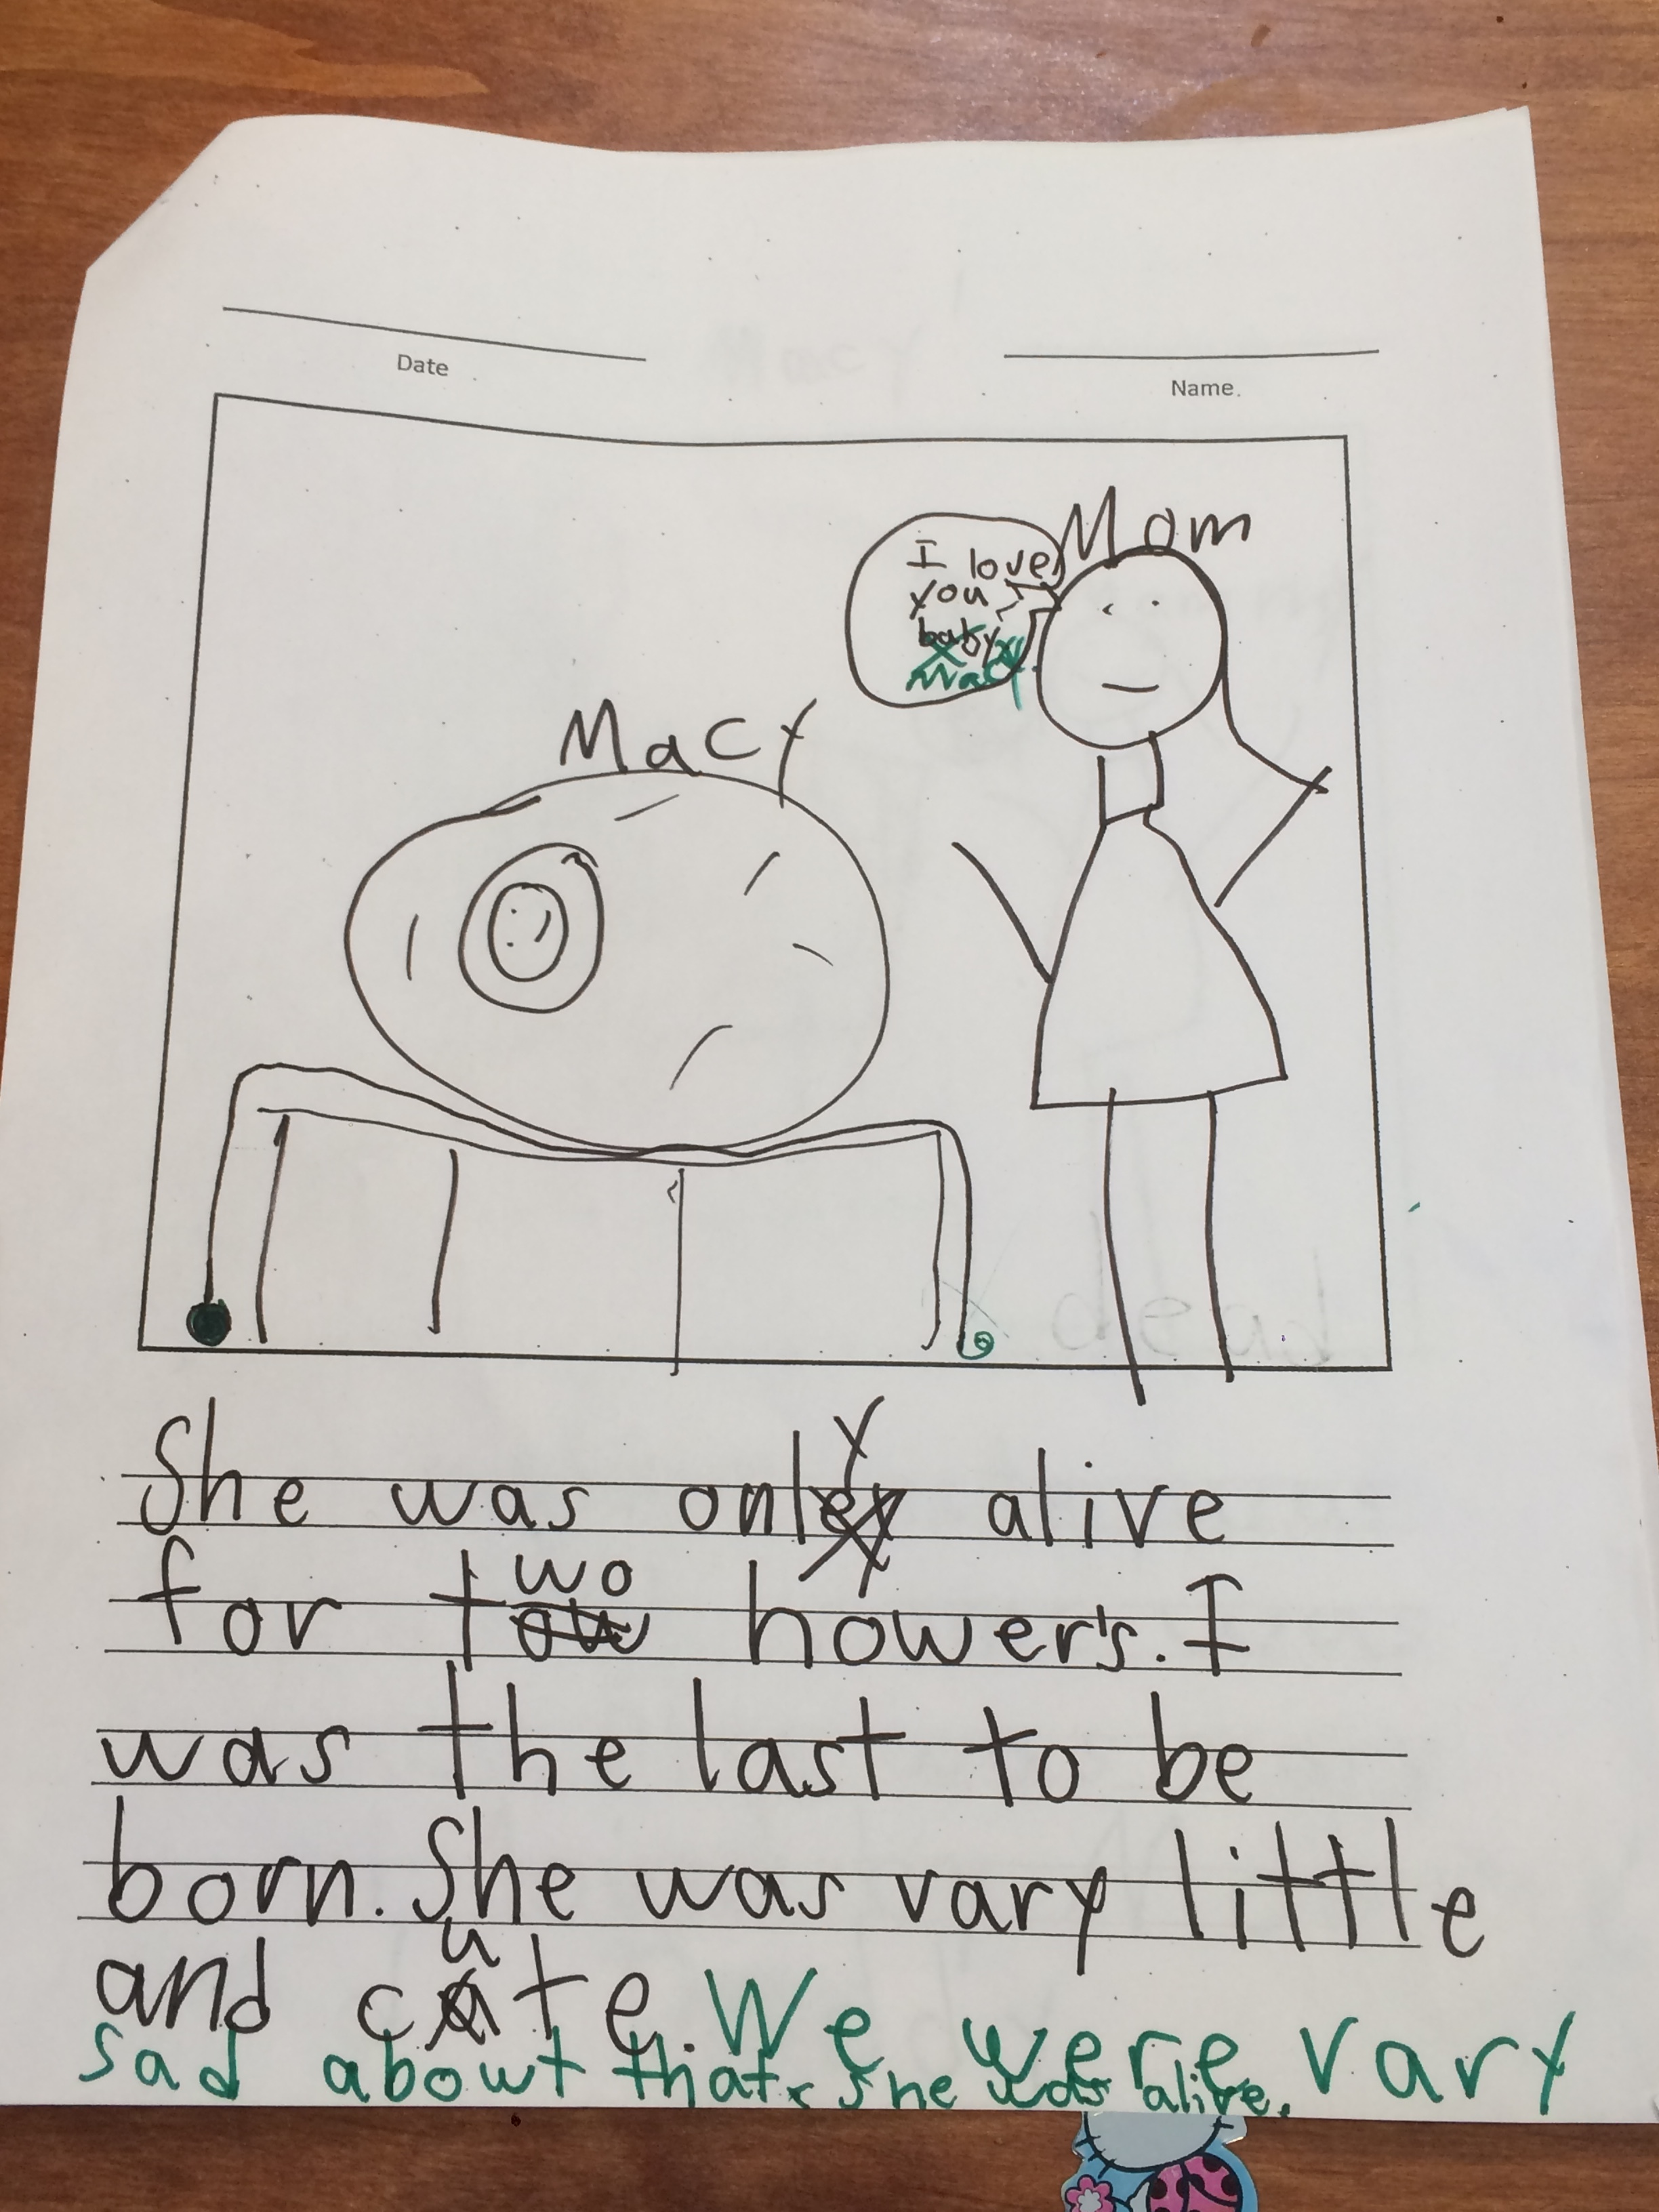 Date
Name
Mom
I love
you
baby
Macy
Macy
She was only alive
for two hower's. I
was the last to be
born. She was vary little
and cute. We were vary
sad about that she was alive.